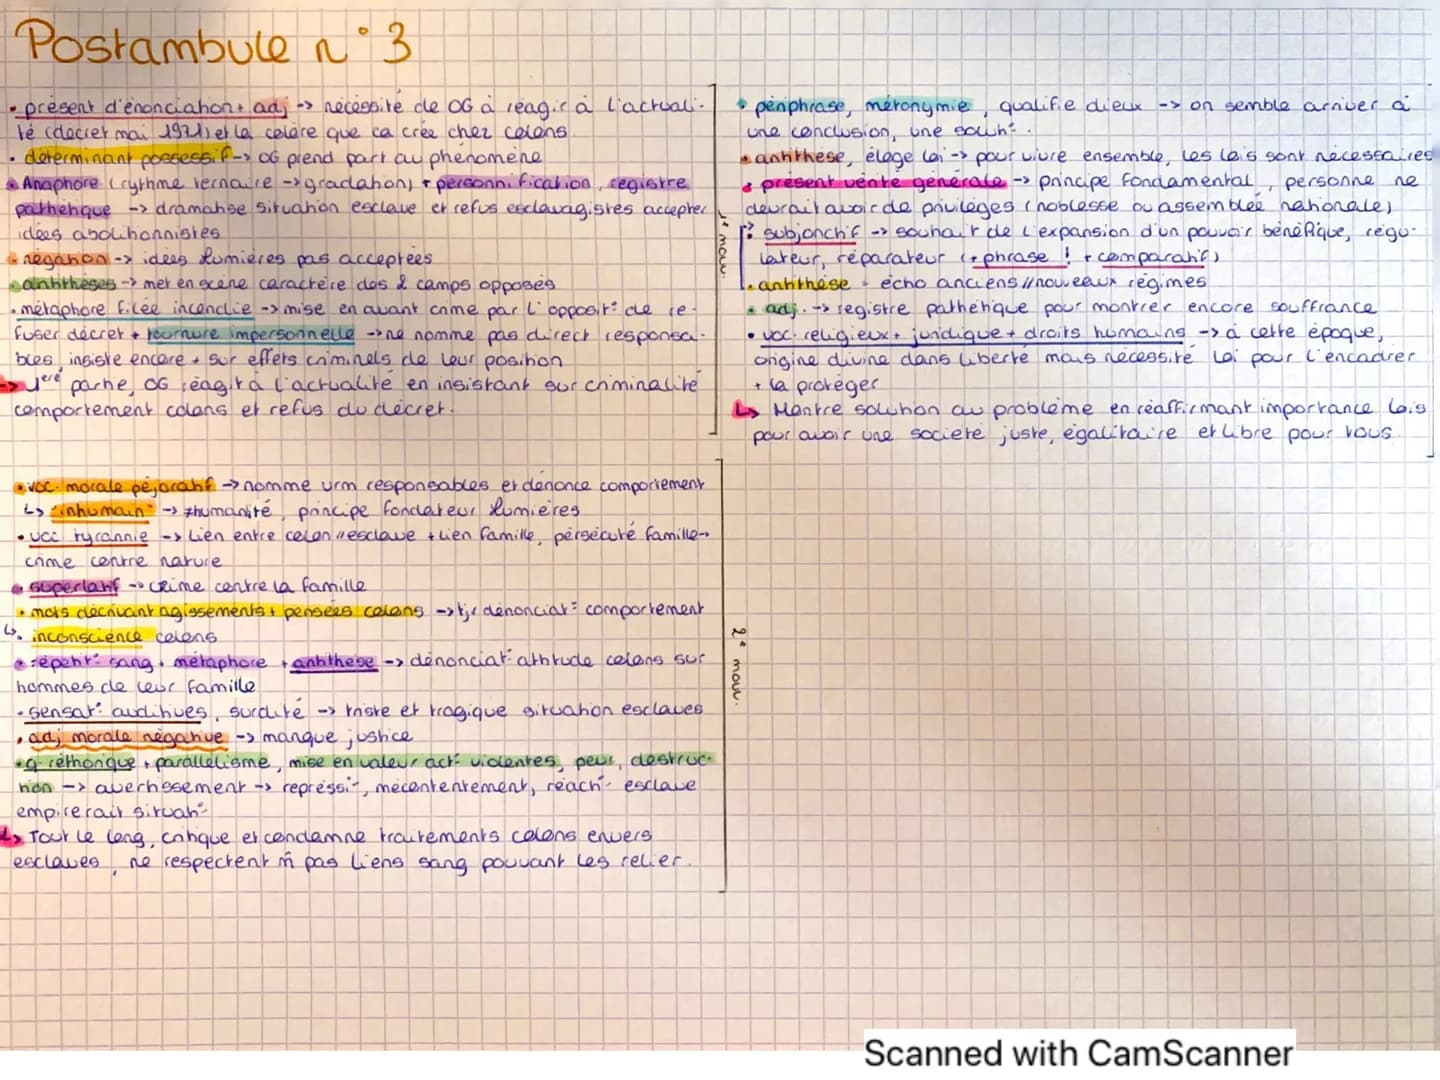 Postambule n°3
• présent d'énonciation + adj -> nécessité de OG à réagir à l'actuali-
té (décret mai 1971) et la colère que ça crée chez colons
• déterminant possessif -> OG prend part au phénomène
• Anaphore (rythme ternaire -> gradation) + personnification, registre
pathétique -> dramatise situation esclave et refus esclavagistes accepter
idées abolitionnistes
• négation -> idées lumières pas acceptées
• antithèses -> met en scène caractère des 2 camps opposés
• métaphore filée incendie -> mise en avant crime par l'opposit° de re-
fuser décret + tournure impersonnelle -> ne nomme pas direct responsa-
bles, insiste encore + sur effets criminels de leur position
-> 1ère partie, OG réagit à l'actualité en insistant sur criminalité
comportement colons et refus du décret.
1e mouv.
• voc. morale péjoratif -> nomme vrm responsables et dénonce comportement
↳ "inhumain" -> ≠humanité, principe fondateur lumières
• voc tyrannie -> lien entre colon // esclave + lien famille, persécuté famille ->
crime contre nature
• superlatif -> crime contre la famille
• mots décrivant agissements + pensées colons -> tjr dénonciat° comportement
↳ inconscience colons
• répétit° sang + métaphore + antithèse -> dénonciat° attitude colons sur
hommes de leur famille
• sensat° auditives, surdité -> triste et tragique situation esclaves
• adj morale négative -> manque justice
• q réthorique + parallélisme, mise en valeur act° violentes, peur, destruc-
tion -> avertissement -> répressi°, mécontentement, réact° esclave
empirerait situat°
↳ Tout le long, critique et condamne traitements colons envers
esclaves, ne respectent m̂ pas liens sang pouvant les relier.
2e mouv.
• périphrase, métonymie, qualifie dieux -> on semble arriver à
une conclusion, une sout°.
• antithèse, éloge loi -> pour vivre ensemble, les lois sont nécessaires
• présent vérité générale -> principe fondamental, personne ne
devrait avoir de privilèges (noblesse ou assemblée nationale)
• subjonctif -> souhait de l'expansion d'un pouvoir bénéfique, régu-
lateur, réparateur (+ phrase ! + comparatif)
• antithèse = écho anciens // nouveaux régimes
• adj. -> registre pathétique pour montrer encore souffrance
• voc. religieux + juridique + droits humains -> à cette époque,
origine divine dans liberté mais nécessité loi pour l'encadrer
+ la protéger
↳ Montre solution au problème en réaffirmant importance lois
pour avoir une société juste, égalitaire et libre pour tous.
Scanned with CamScanner